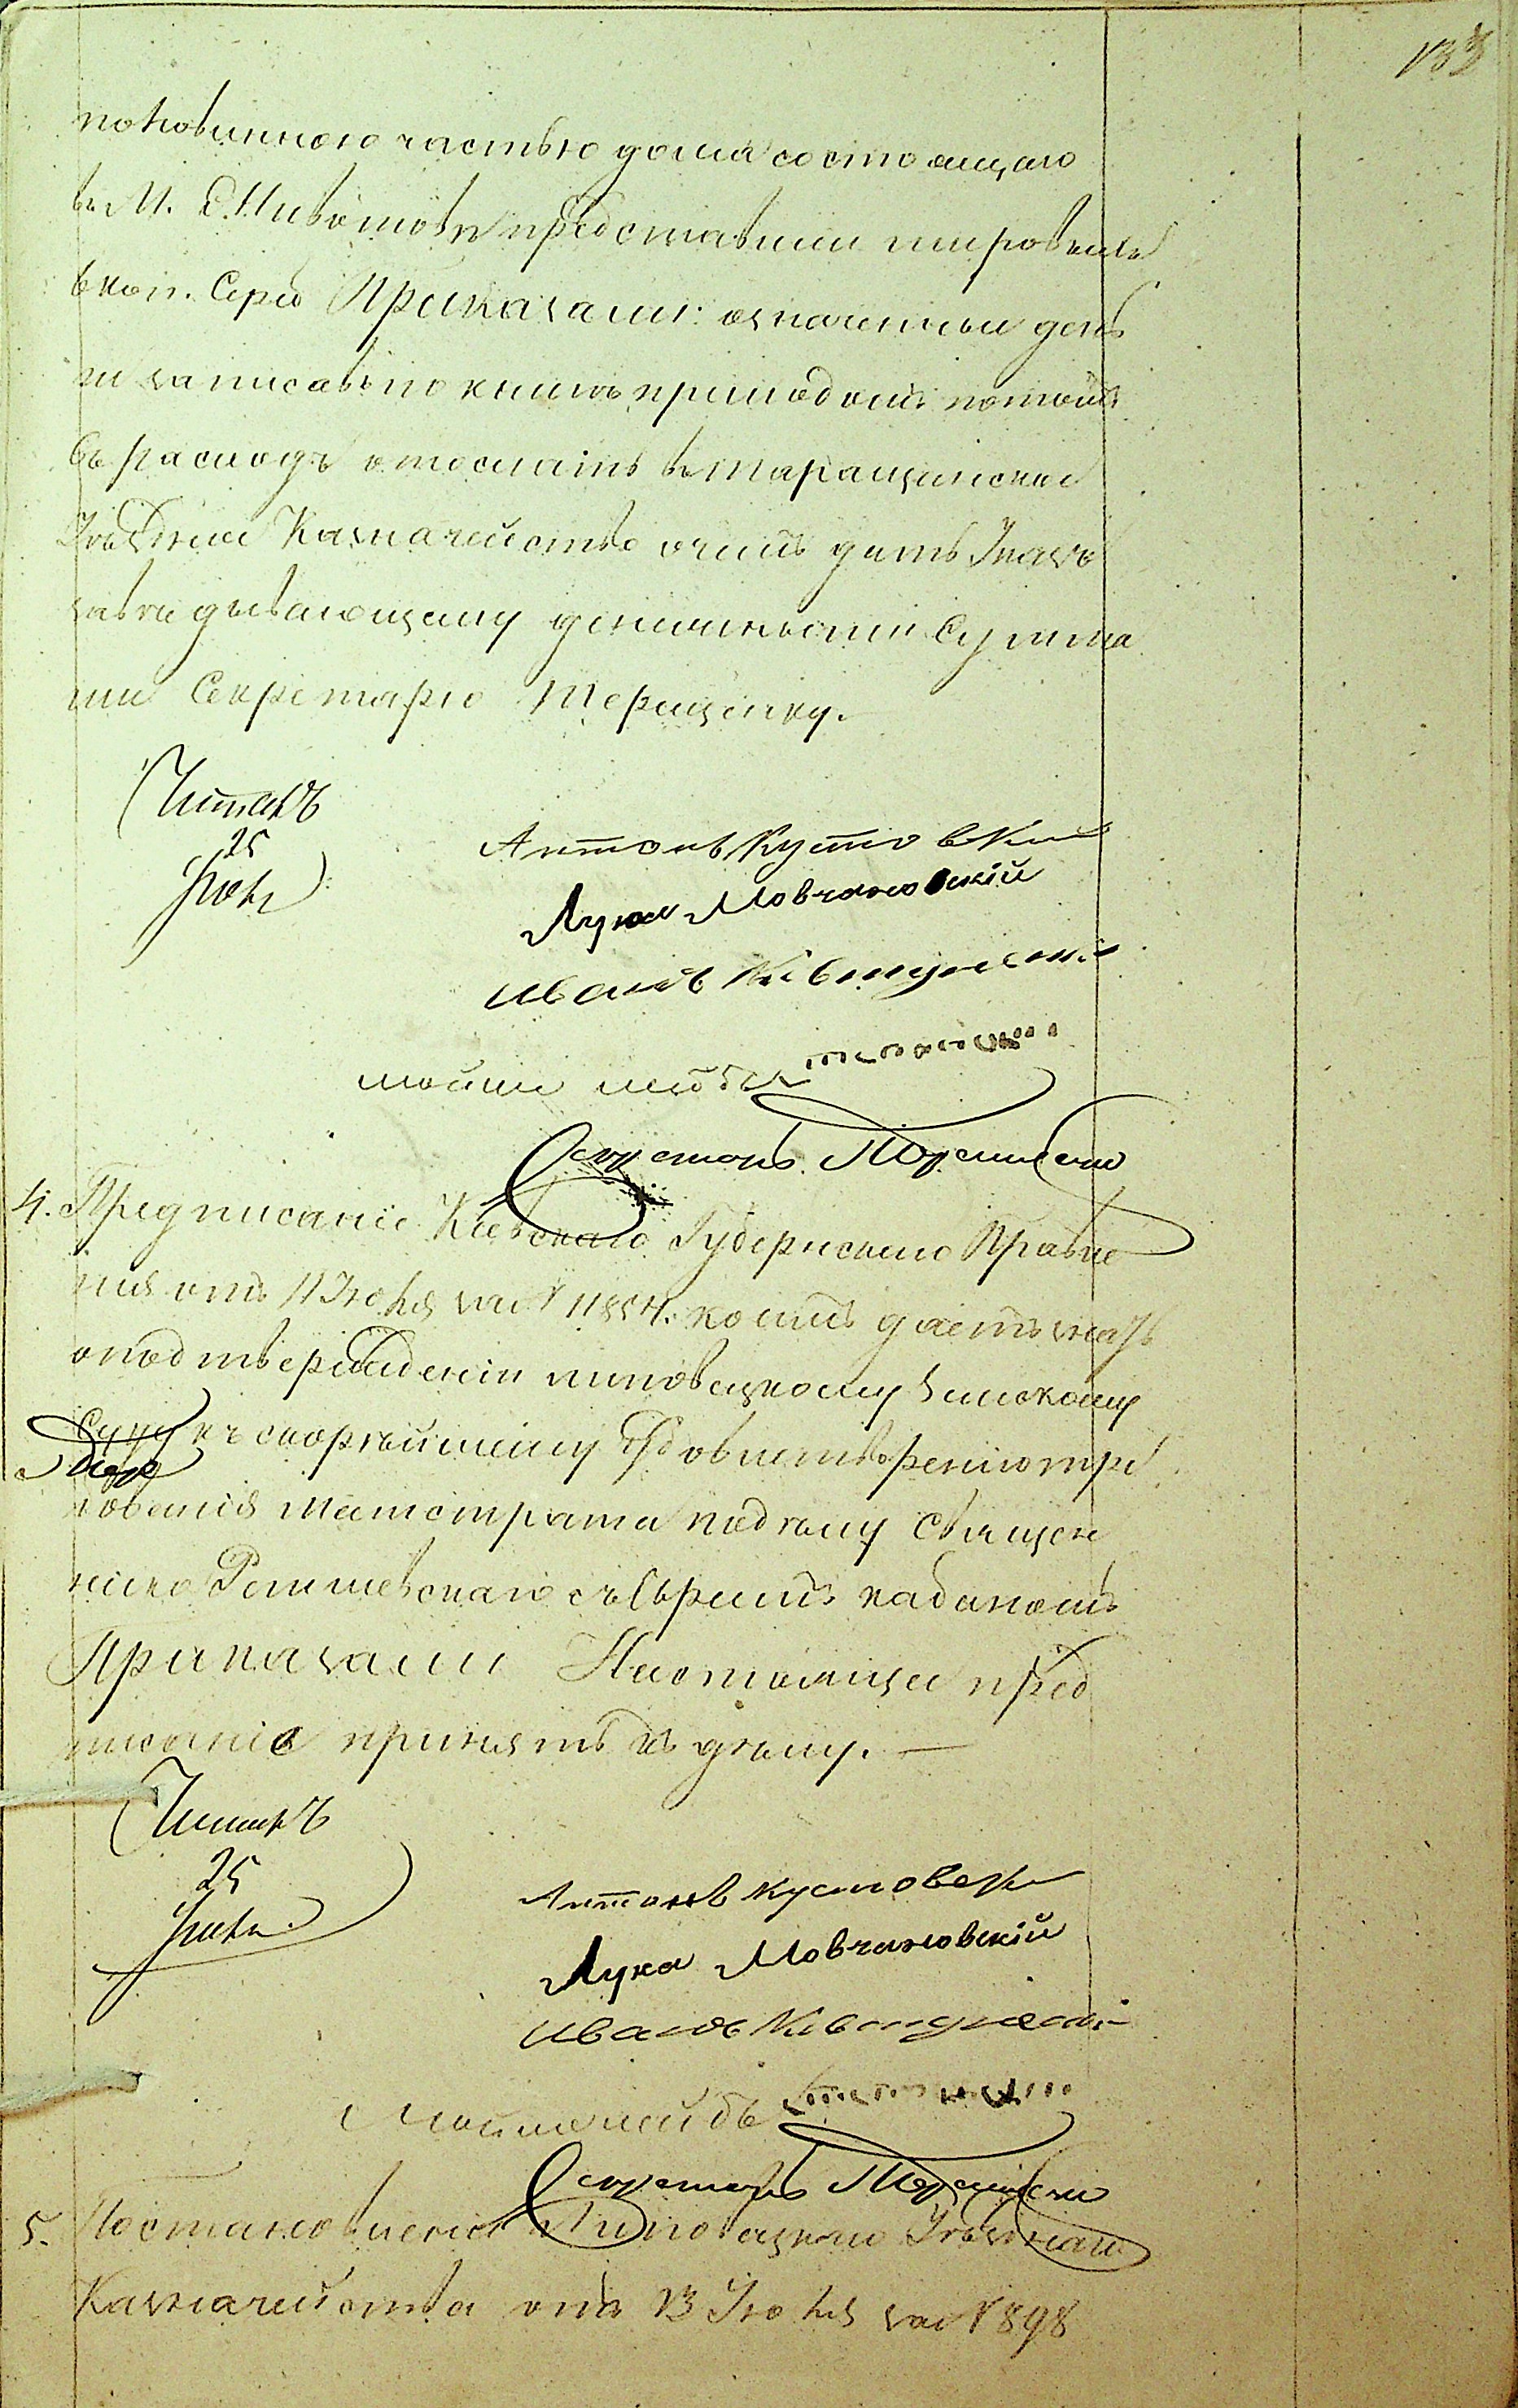 133
половинною частью дома состоящаго
въ М. Животовѣ представили
коп. Сереб Приказали: означенныи день
ги записавъ по книгѣ приходомъ потомъ
въ расходъ отослать въ Таращанское
Уѣздное Казначейство о чемъ дать Указъ
завѣдывающему денежными Сумма
ми Секретарю Терещенку.
Читалъ
25
Іюля
Антонъ Кустовскій
Лука Мовчановскій
Иванъ Ковтунскій
Секретарь Терещенко
4. Предписаніе Кіевскаго Губернскаго Правле
нія отъ 11 Іюля за № 11554. коимъ даетъ знать
о подтвержденіи Липовецкому Земскому
Суду къ скорѣйшему удовлетворенію тре
бованія Магистрата по дѣлу Священ
ника с Евреемъ
Приказали Настоящее пред
писаніе принять къ дѣлу.
Читалъ
25
Іюля
Антонъ Кустовскій
Лука Мовчановскій
Иванъ Ковтунскій
Секретарь Терещенко
5. Постановленія Липовецкаго Уѣзднаго
Казначейства отъ 13 Іюля за № 898